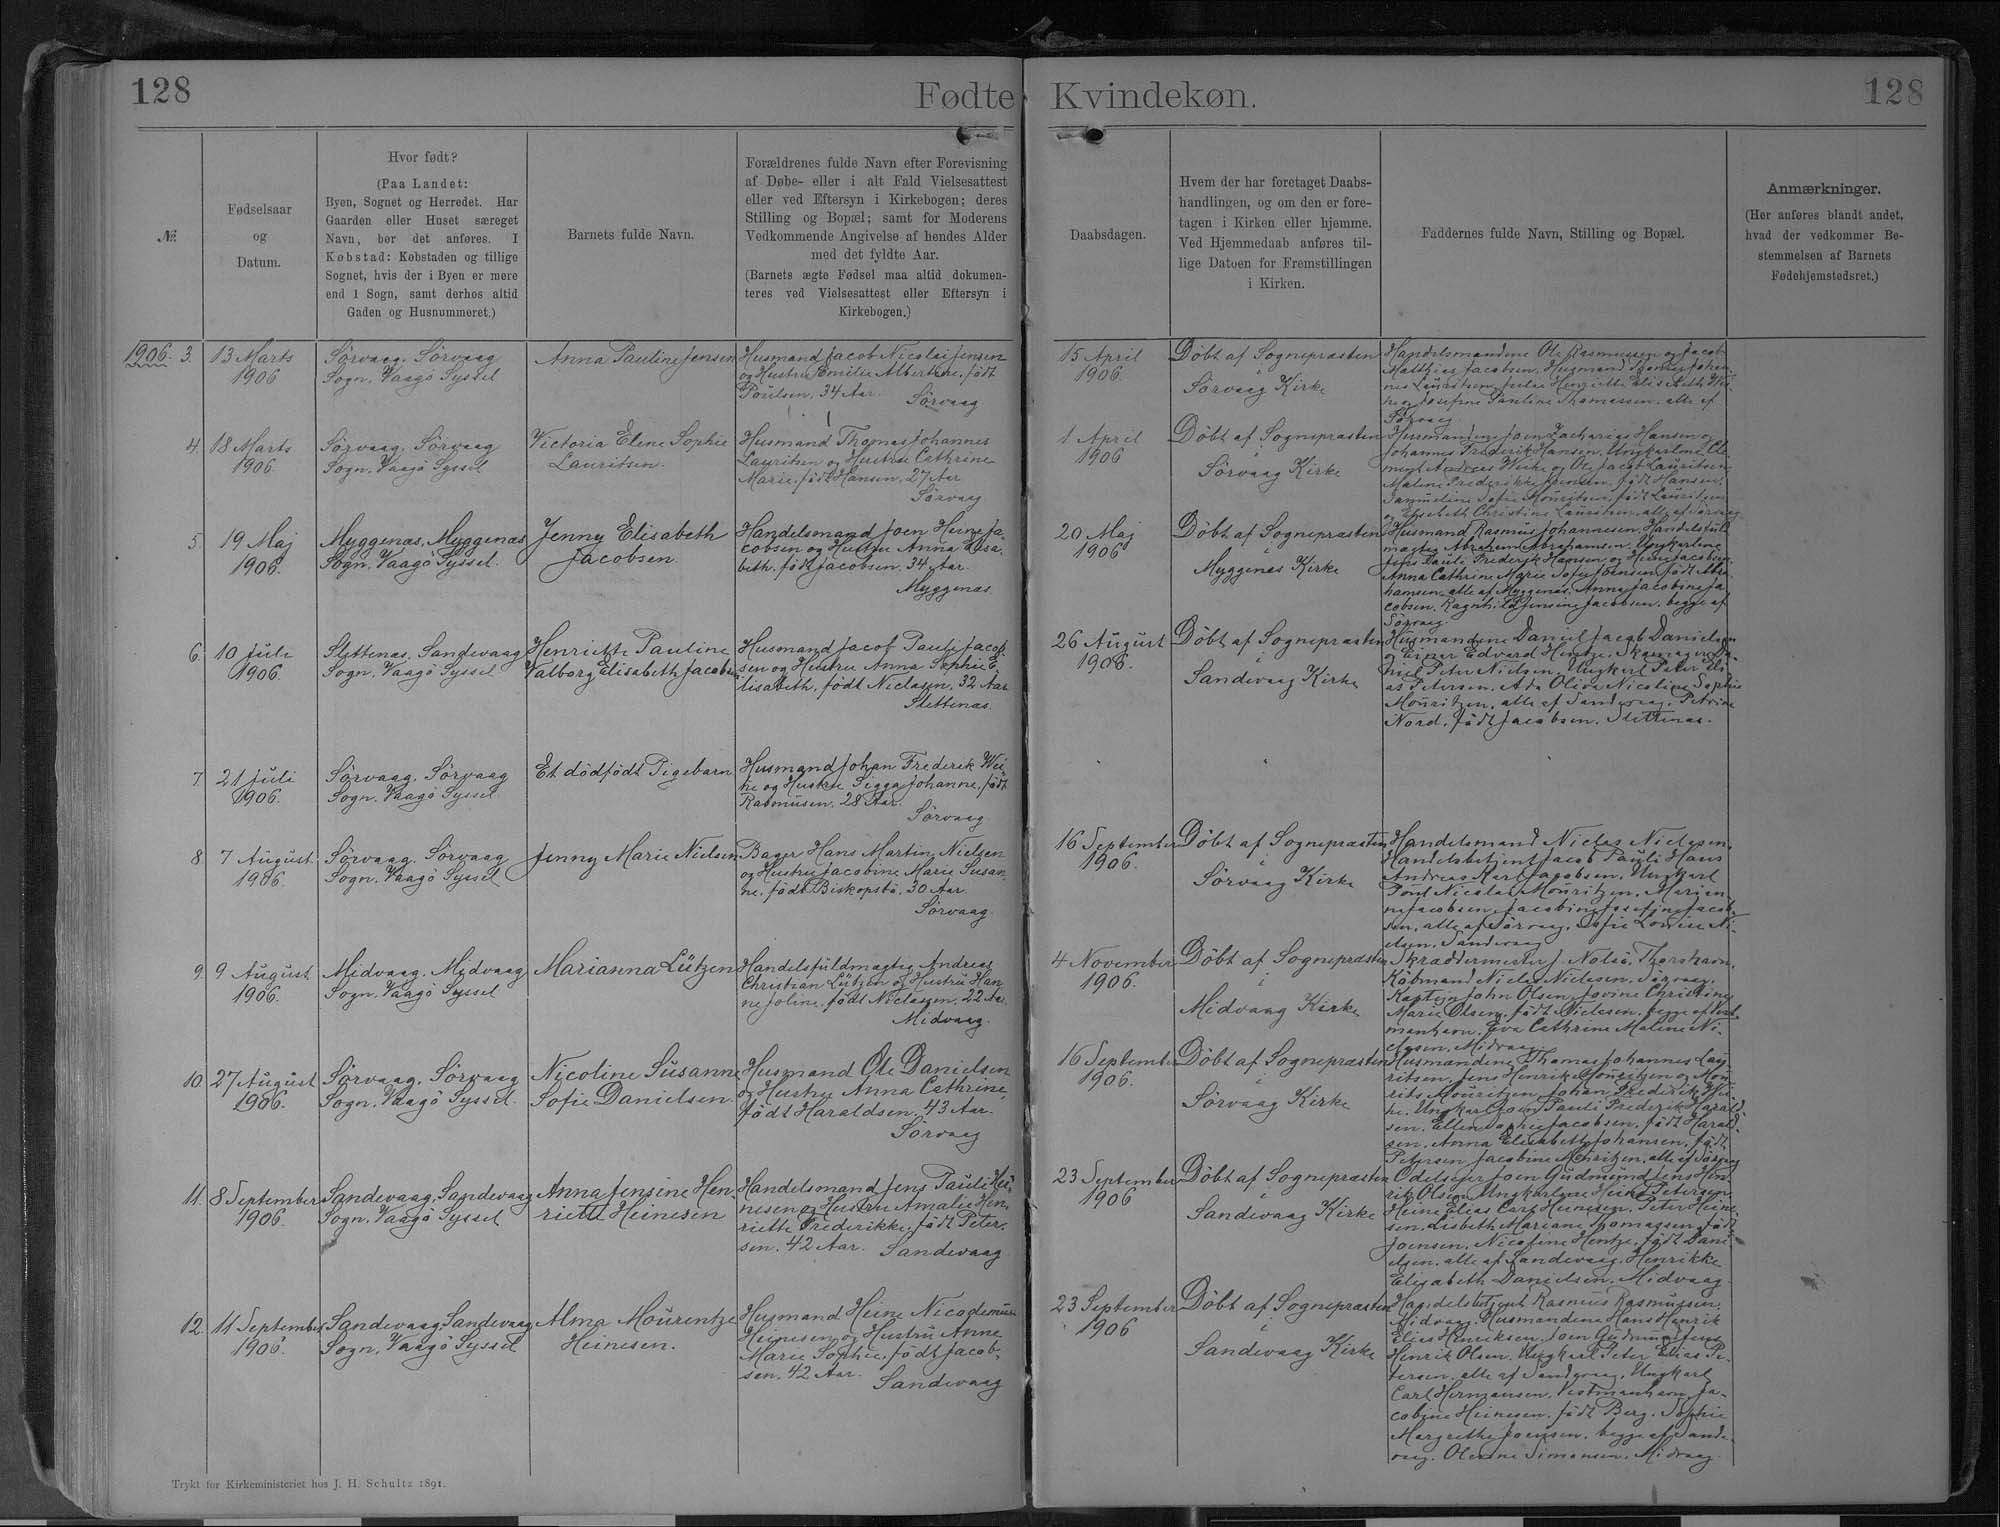 128
Fødte
Kvindekøn.
128
№.
Fødselsaar
og
Datum.
Hvor født?
(Paa Landet:
Byen, Sognet og Herredet. Har
Gaarden eller Huset særeget
Navn, bør det anføres. I
Købstad: Købstaden og tillige
Sognet, hvis der i Byen er mere
end 1 Sogn, samt derhos altid
Gaden og Husnummeret.)
Barnets fulde Navn.
Forældrenes fulde Navn efter Forevisning
af Døbe- eller i alt Fald Vielsesattest
eller ved Eftersyn i Kirkebogen; deres
Stilling og Bopæl; samt for Moderens
Vedkommende Angivelse af hendes Alder
med det fyldte Aar.
(Barnets ægte Fødsel maa altid dokumen-
teres ved Vielsesattest eller Eftersyn i
Kirkebogen.)
Daabsdagen.
Hvem der har foretaget Daabs-
handlingen, og om den er fore-
tagen i Kirken eller hjemme.
Ved Hjemmedaab anføres til-
lige Datoen for Fremstillingen
i Kirken.
Faddernes fulde Navn, Stilling og Bopæl.
Anmærkninger.
(Her anføres blandt andet,
hvad der vedkommer Be-
stemmelsen af Barnets
Fødehjemstedsret.)
1906. 3.
13 Marts
1906
Sörvaag. Sörvaag
Sogn. Vaagö Syssel
Anna Pauline Jensen
Husmand Jacob Nicolai Jensen
og Hustru Emilie Albertine, født
Poulsen, 34 Aar.
Sörvaag
15 April
1906.
Döbt af Sognepræsten
i
Sörvaag Kirke
Handelsmændene Ole Rasmussen og Jacob
Matthias Jacobsen, Husmand Thomas Johan-
nes Lauritsen, Julie Henriette Elisabeth Wei-
he og Josefine Pauline Thomassen, alle af
Sörvaag
4.
18 Marts
1906.
Sörvaag. Sörvaag
Sogn. Vaagö Syssel
Victoria Elene Sophie
Lauritsen.
Husmand Thomas Johannes
Lauritsen og Hustru Cathrine
Marie, født Hansen, 27 Aar
Sörvaag
1 April
1906
Döbt af Sognepræsten
i
Sörvaag Kirke
Husmændene Joen Zacharias Hansen og
Johannes Frederik Hansen, Ungkarlene Cle-
ment Andreas Weihe og Ole Jacob Lauritsen,
Malene Frederikke Joensen, født Hansen,
Sofie Mouritsen, født Lauritsen
og Elsebeth Christine Lauritsen, alle af Sörvaag
5.
19 Maj
1906.
Myggenæs, Myggenæs
Sogn. Vaagö Syssel.
Jenny Elisabeth
Jacobsen
Handelsmand Joen Heine Ja-
cobsen og Hustru Anna Elisa-
beth, født Jacobsen, 34 Aar.
Myggenæs.
20 Maj
1906
Döbt af Sognepræsten
i
Myggenæs Kirke
Husmand Rasmus Johannesen, Handelsfuld-
mægtig Abraham Abrahamsen, Ungkarlene
Jens Pauli Frederik Hansen og Heine Jacobsen,
Anna Cathrine Marie Sofie Joensen, født Abra-
hamsen, alle af Myggenæs, Anna Jacobine Ja-
cobsen, Ragnhild Jensine Jacobsen, begge af
Sörvaag.
6.
10 Juli
1906.
Slettenæs, Sandevaag
Sogn. Vaagö Syssel
Henriette Pauline
Valborg Elisabeth Jacobsen
Husmand Jacob Pauli Jacob-
sen og Hustru Anna Sophie E-
lisabeth, født Niclasen, 32 Aar
Slettenæs.
26 August
1906.
Döbt af Sognepræsten
i
Sandevaag Kirke
Husmændene Daniel Jacob Danielsen
og Einar Edvard Hentze, Skomager Da-
niel Peter Nielsen, Ungkarl Peter Eli-
as Petersen, Ada Oliva Nicoline Sophie
Mouritzen, alle af Sandevaag, Petrine
Nord, født Jacobsen, Slettenæs.
7.
21 Juli
1906.
Sörvaag. Sörvaag
Sogn. Vaagö Syssel.
Et dödfödt Pigebarn
Husmand Johan Frederik Wei-
he og Hustru Sigga Johanne, født
Rasmussen, 28 Aar.
Sörvaag.
8.
7 August
1906.
Sörvaag. Sörvaag
Sogn. Vaagö Syssel
Jenny Marie Nielsen
Bager Hans Martin Nielsen
og Hustru Jacobine Marie Susan-
ne, født Biskopstö, 30 Aar.
Sörvaag.
16 September
1906.
Döbt af Sognepræsten
i
Sörvaag Kirke
Handelsmand Niclas Niclasen,
Handelsbetjent Jacob Pauli Hans
Andreas Karl Jacobsen, Ungkarl
Poul Nicolai Mouritzen, Marian-
ne Jacobsen, Jacobine Josefine Jacob-
sen, alle af Sörvaag, Sofie Lovise Ni-
elsen, Sandevaag
9.
9 August
1906.
Midvaag. Midvaag
Sogn. Vaagö Syssel
Marianna Lützen
Handelsfuldmægtig Andreas
Christian Lützen og Hustru Han-
ne Joline, født Niclasen, 22 Aar.
Midvaag.
4 November
1906.
Döbt af Sognepræsten
i
Midvaag Kirke
Skræddermester J. Nolsö, Thorshavn,
Köbmand Niels Nielsen, Sörvaag,
Kaptejn John Olsen, Jovine Christine
Marie Olsen, født Nielsen, begge af Vest-
manhavn, Eva Cathrine Malene Ni-
clasen, Midvaag
10.
27 August
1906.
Sörvaag. Sörvaag
Sogn. Vaagö Syssel.
Nicoline Susanne
Sofie Danielsen.
Husmand Ole Danielsen
og Hustru Anna Cathrine,
født Haraldsen, 43 Aar.
Sörvaag
16 September
1906.
Döbt af Sognepræsten
i
Sörvaag Kirke
Husmændene Thomas Johannes Lau-
ritsen, Jens Henrik Mouritzen og Mou-
rits Mouritzen, Johan Frederik Wei-
he, Ungkarl Joen Pauli Frederik Harald-
sen, Ellen Sophie Jacobsen, født Harald-
sen, Anna Elisabeth Johansen, født
Petersen, Jacobine Mouritzen, alle af Sörvaag
11.
8 September
1906.
Sandevaag, Sandevaag
Sogn. Vaagö Syssel
Anna Jensine Hen-
riette Heinesen
Handelsmand Jens Pauli Hei-
nesen og Hustru Amalie Hen-
riette Frederikke, født Peter-
sen, 42 Aar. Sandevaag
23 September
1906
Döbt af Sognepræsten
i
Sandevaag Kirke
Odelsejer Joen Gudmund Jens Hen-
rik Olsen, Ungkarlene Heine Petersen,
Heine Elias Carl Heinesen, Peter Heine-
sen, Lisbeth Mariane Thomassen, født
Joensen, Nicoline Hentze, født Dani-
elsen, alle af Sandevaag, Henrikke
Elisabeth Danielsen, Midvaag.
12.
11 September
1906.
Sandevaag, Sandevaag
Sogn. Vaagö Syssel
Alma Mourentze
Heinesen.
Husmand Heine Nicodemus
Heinesen og Hustru Anne
Marie Sophie, født Jacob-
sen, 42 Aar. Sandevaag
23 September
1906
Döbt af Sognepræsten
i
Sandevaag Kirke
Handelsbetjent Rasmus Rasmussen,
Midvaag, Husmændene Hans Henrik
Elias Henriksen, Joen Gudmund Jens
Henrik Olsen, Ungkarl Peter Elias Pe-
tersen, alle af Sandevaag, Ungkarl
Carl Hermansen, Vestmanhavn, Ja-
cobine Heinesen, født Berg, Sophie
Margrethe Joensen, begge af Sande-
vaag. Olevine Simonsen, Midvaag.
Trykt for Kirkeministeriet hos J. H. Schultz 1891.